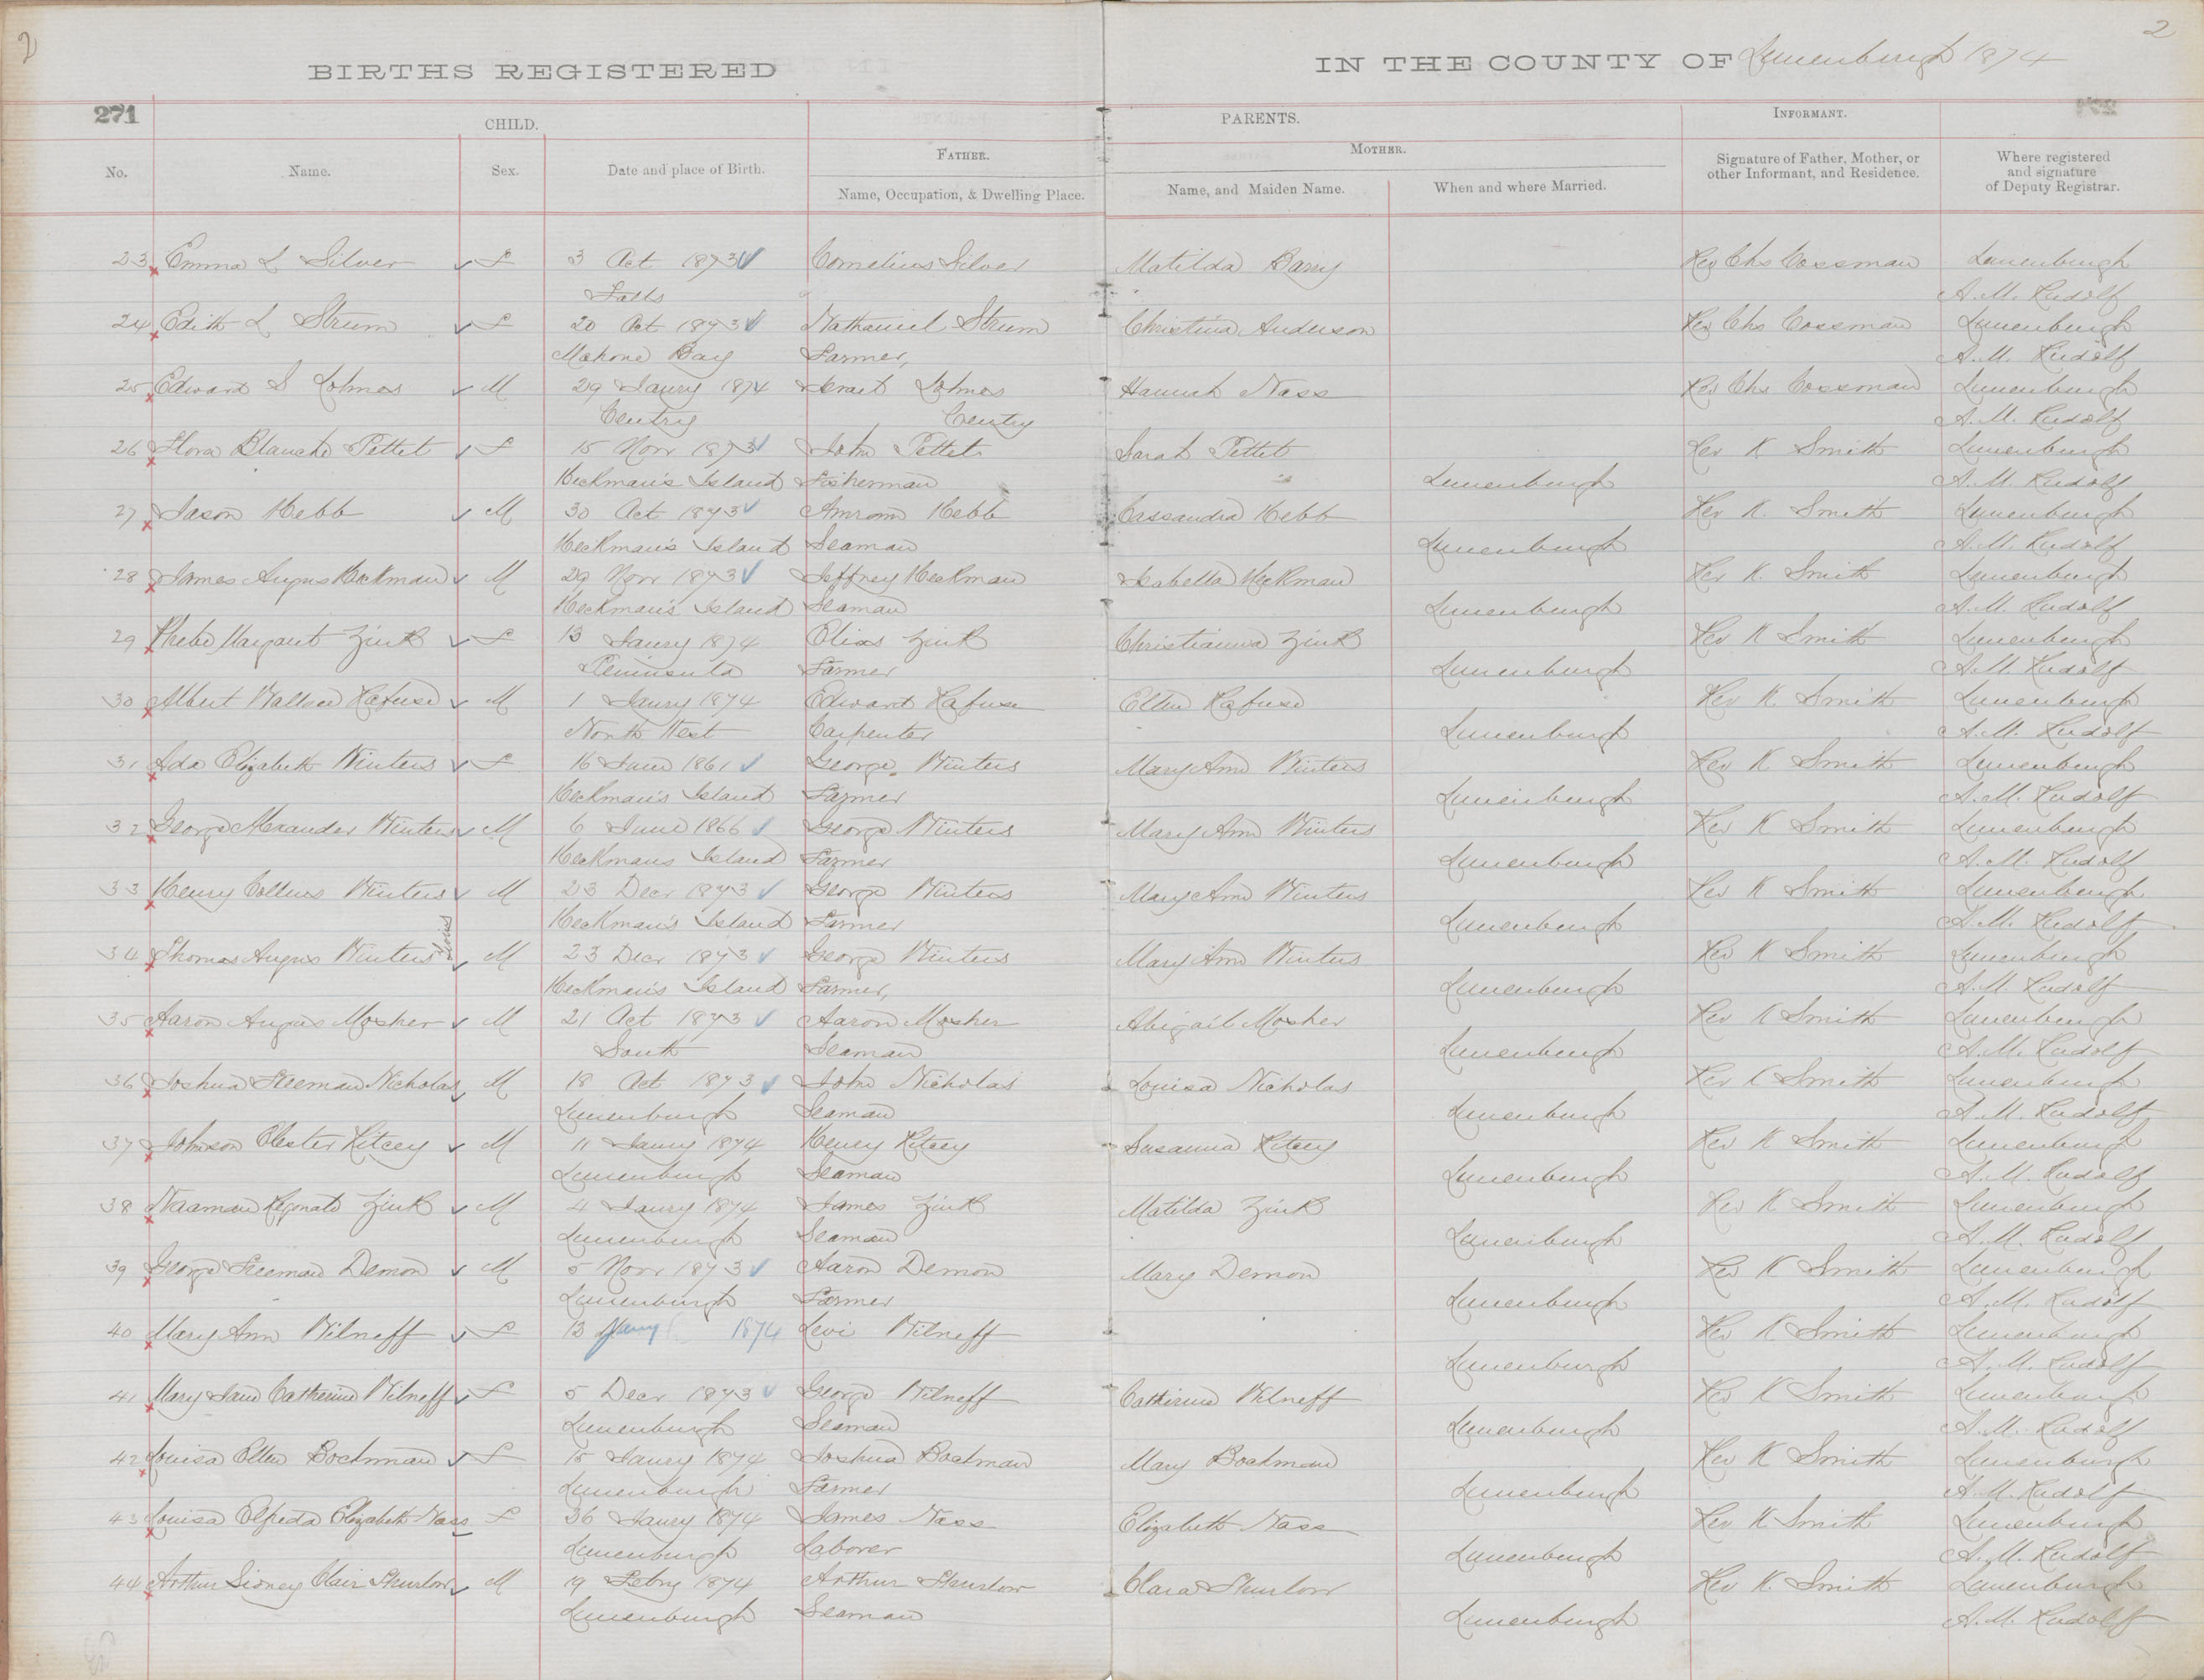 2
2
BIRTHS REGISTERED IN THE COUNTY OF Lunenburgh 1874
271
CHILD. PARENTS. INFORMANT.
FATHER. MOTHER.
No. Name. Sex. Date and place of Birth. Name, Occupation, & Dwelling Place. Name, and Maiden Name. When and where Married. Signature of Father, Mother, or other Informant, and Residence. Where registered and signature of Deputy Registrar.
23 Emma L Silver F 3 Oct 1873 Cornelius Silver Matilda Barry Rev Chs Cossman Lunenburgh
Falls A. M. Rudolf
24 Edith L Strum F 20 Oct 1873 Nathaniel Strum Christina Anderson Rev Chs Cossman Lunenburgh
Mahone Bay Farmer, A. M. Rudolf
25 Edward S Lohnes M 29 Jany 1874 Israel Lohnes Hannah Nass Rev Chs Cossman Lunenburgh
Centry Centry A. M. Rudolf
26 Flora Blanche Pettet F 15 Novr 1873 John Pettet Sarah Pettet Rev K Smith Lunenburgh
Heckman's Island Fisherman Lunenburgh A. M. Rudolf
27 Jason Hebb M 30 Oct 1873 Amrom Hebb Cassandra Hebb Rev K. Smith Lunenburgh
Heckman's Island Seaman Lunenburgh A. M. Rudolf
28 James Angus Heckman M 29 Novr 1873 Jeffrey Heckman Isabella Heckman Rev K. Smith Lunenburgh
Heckman's Island Seaman Lunenburgh A. M. Rudolf
29 Phebe Margaret Zink F 13 Janry 1874 Elias Zink Christianna Zink Rev K Smith Lunenburgh
Peninsula Farmer Lunenburgh A. M. Rudolf
30 Albert Wallace Rafuse M 1 Janry 1874 Edward Rafuse Ellen Rafuse Rev K. Smith Lunenburgh
North West Carpenter Lunenburgh A. M. Rudolf
31 Ada Elizabeth Winters F 16 June 1861 George Winters Mary Ann Winters Rev K Smith Lunenburgh
Heckman's Island Farmer Lunenburgh A. M. Rudolf
32 George Alexander Winters M 6 June 1866 George Winters Mary Ann Winters Rev K Smith Lunenburgh
Heckmans Island Farmer Lunenburgh A. M. Rudolf
33 Henry Collins Winters M 23 Decr 1873 George Winters Mary Ann Winters Rev K Smith Lunenburgh
Heckman's Island Farmer Lunenburgh A. M. Rudolf
34 Thomas Angus Winters M 23 Decr 1873 George Winters Mary Ann Winters Rev K Smith Lunenburgh
Heckman's Island Farmer, Lunenburgh A. M. Rudolf
35 Aaron Angus Mosher M 21 Oct 1873 Aaron Mosher Abigail Mosher Rev K Smith Lunenburgh
South Seaman Lunenburgh A. M. Rudolf
36 Joshua Freeman Nicholas M 18 Oct 1873 John Nicholas Louisa Nicholas Rev K Smith Lunenburgh
Lunenburgh Seaman Lunenburgh A. M. Rudolf
37 Johnson Chester Ritcey M 11 Janry 1874 Henry Ritcey Susanna Ritcey Rev K Smith Lunenburgh
Lunenburgh Seaman Lunenburgh A. M. Rudolf
38 Naaman Reginald Zink M 4 Janry 1874 James Zink Matilda Zink Rev K Smith Lunenburgh
Lunenburgh Seaman Lunenburgh A. M. Rudolf
39 George Freeman Demon M 5 Novr 1873 Aaron Demon Mary Demon Rev K Smith Lunenburgh
Lunenburgh Farmer Lunenburgh A. M. Rudolf
40 Mary Ann Wilneff F 13 Jany 1874 Levi Wilneff Rev K Smith Lunenburgh
Lunenburgh A. M. Rudolf
41 Mary Jane Catherine Wilneff F 5 Decr 1873 George Wilneff Catherine Wilneff Rev K Smith Lunenburgh
Lunenburgh Seaman Lunenburgh A. M. Rudolf
42 Louisa Ellen Bochman F 15 Janry 1874 Joshua Bochman Mary Bochman Rev K Smith Lunenburgh
Lunenburgh Farmer Lunenburgh A. M. Rudolf
43 Louisa Elfreda Elizabeth Nass F 26 Janry 1874 James Nass Elizabeth Nass Rev K Smith Lunenburgh
Lunenburgh Laborer Lunenburgh A. M. Rudolf
44 Arthur Sidney Clair Sturlow M 19 Febry 1874 Arthur Sturlow Clara Sturlow Rev K. Smith Lunenburgh
Lunenburgh Seaman Lunenburgh A. M. Rudolf